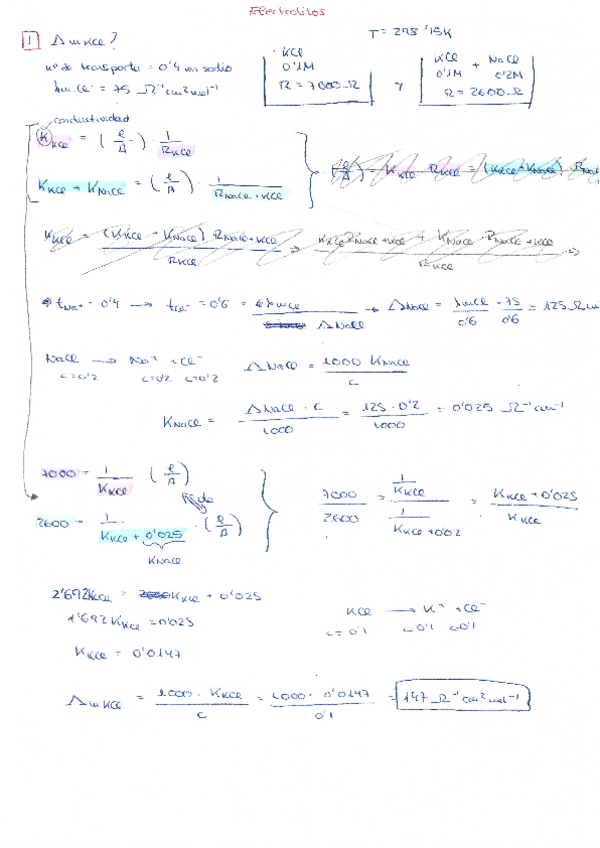 Electrolitos
T = 298'15K
1 Λm KCl?
nº de transporte = 0'4 ion sodio
λm Cl⁻ = 75 Ω⁻¹cm²mol⁻¹
KCl
0'1M
R = 7000 Ω
y
KCl + NaCl
0'1M 0'2M
R = 2600 Ω
conductividad
K KCl = (l/A) · 1/R KCl
K KCl + K NaCl = (l/A) · 1/R NaCl + KCl
t Na⁺ = 0'4 → t Cl⁻ = 0'6 = λm Cl / Λ NaCl → Λ NaCl = λm Cl / 0'6 = 75 / 0'6 = 125 Ω
NaCl → Na⁺ + Cl⁻
c=0'2 c=0'2 c=0'2
Λ NaCl = 1000 K NaCl / c
K NaCl = Λ NaCl · c / 1000 = 125 · 0'2 / 1000 = 0'025 Ω⁻¹ cm⁻¹
7000 = 1 / K KCl (l/A)
2600 = 1 / K KCl + 0'025 · (l/A)
K NaCl
7000 / 2600 = 1/K KCl / 1/K KCl + 0'02 = K KCl + 0'025 / K KCl
2'692 K KCl = K KCl + 0'025
1'692 K KCl = 0'025
K KCl = 0'0147
KCl → K⁺ + Cl⁻
c=0'1 c=0'1 c=0'1
Λm KCl = 1000 · K KCl / c = 1000 · 0'0147 / 0'1 = 147 Ω⁻¹ cm² mol⁻¹